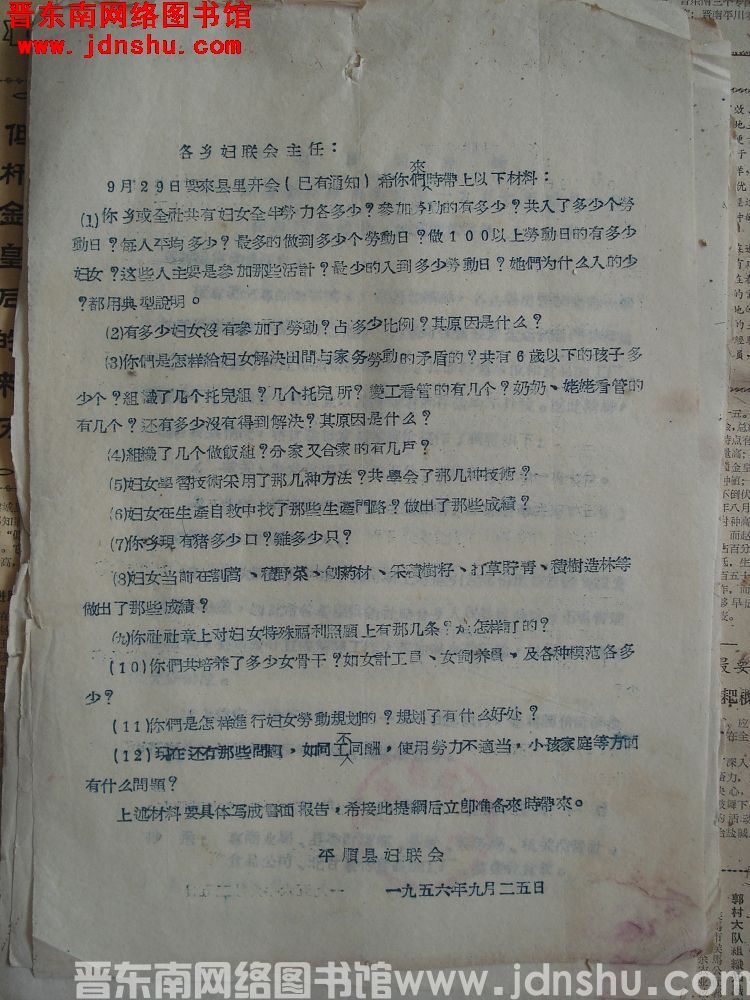 晋东南网络图书馆
www.jdnshu.com
各乡妇联会主任：
來
9月29日要來县里开会(已有通知)希你們時帶上以下材料：
(1)你乡或全社共有妇女全半劳力各多少？參加劳动的有多少？共入了多少个勞
動日？每人平均多少？最多的做到多少个勞動日？做100以上勞動日的有多少
妇女？这些人主要是參加那些活計？最少的入到多少勞動日？她們为什么入的少
？都用典型說明。
(2)有多少妇女沒有參加了勞動？占多少比例？其原因是什么？
(3)你們是怎样給妇女解决田間与家务勞動的矛盾的？共有6歲以下的孩子多
少个？組織了几个托兒組？几个托兒所？變工看管的有几个？奶奶、姥姥看管的
有几个？还有多少沒有得到解决？其原因是什么？
(4)組織了几个做飯組？分家又合家的有几戶？
(5)妇女學習技術采用了那几种方法？共學会了那几种技術？
(6)妇女在生產自救中找了那些生產門路？做出了那些成績？
(7)你乡現有猪多少口？雞多少只？
(8)妇女当前在割蒿、積野菜、刨药材、采積樹籽、打草貯青、積樹造林等
做出了那些成績？
(九)你社社章上对妇女特殊福利照顧上有那几条？是怎样訂的？
(10)你們共培养了多少女骨干？如女計工員、女飼养員、及各种模范各多
少？
(11)你們是怎样進行妇女勞動規划的？規划了有什么好处？
不
(12)現在还有那些問題，如同工同酬，使用勞力不適当，小孩家庭等方面
有什么問題？
上述材料要具体写成書面报告，希接此提綱后立卽准备來時帶來。
平順县妇联会
一九五六年九月二五日
晋东南网络图书馆www.jdnshu.com